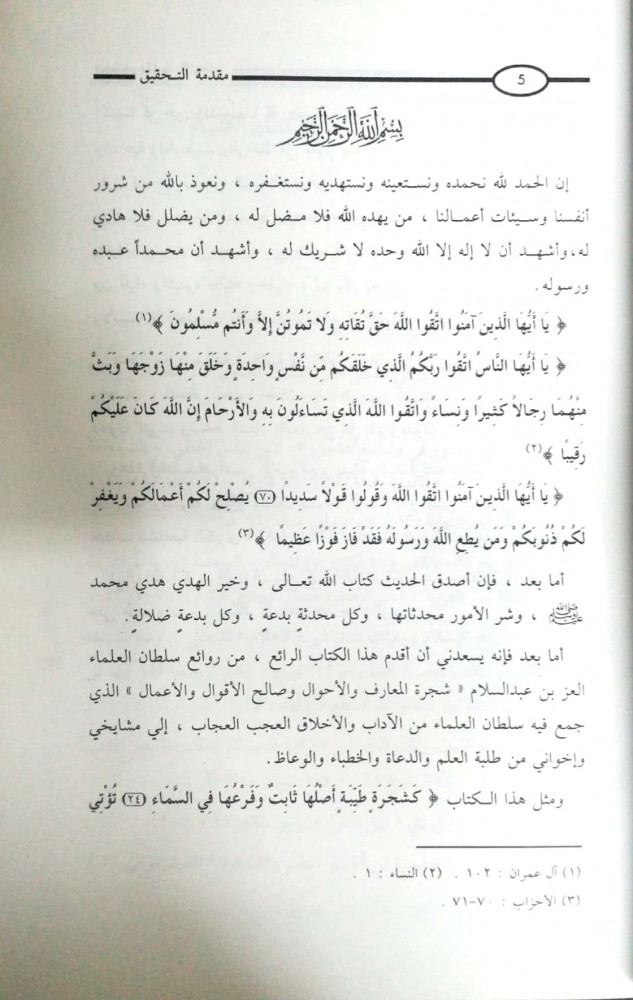 مقدمة التحقيق
5
بسم الله الرحمن الرحيم
إن الحمد لله نحمده ونستعينه ونستهديه ونستغفره ، ونعوذ بالله من شرور
أنفسنا وسيئات أعمالنا ، من يهده الله فلا مضل له ، ومن يضلل فلا هادي
له، وأشهد أن لا إله إلا الله وحده لا شريك له ، وأشهد أن محمداً عبده
ورسوله .
﴿ يَا أَيُّهَا الَّذِينَ آمَنُوا اتَّقُوا اللَّهَ حَقَّ تُقَاتِهِ وَلا تَمُوتُنَّ إِلاَّ وَأَنتُم مُّسْلِمُونَ ﴾(١)
﴿ يَا أَيُّهَا النَّاسُ اتَّقُوا رَبَّكُمُ الَّذِي خَلَقَكُم مِّن نَّفْسٍ وَاحِدَةٍ وَخَلَقَ مِنْهَا زَوْجَهَا وَبَثَّ
مِنْهُمَا رِجَالاً كَثِيرًا وَنِسَاءً وَاتَّقُوا اللَّهَ الَّذِي تَسَاءَلُونَ بِهِ وَالأَرْحَامَ إِنَّ اللَّهَ كَانَ عَلَيْكُمْ
رَقِيبًا ﴾(٢)
﴿ يَا أَيُّهَا الَّذِينَ آمَنُوا اتَّقُوا اللَّهَ وَقُولُوا قَوْلاً سَدِيدًا (٧٠) يُصْلِحْ لَكُمْ أَعْمَالَكُمْ وَيَغْفِرْ
لَكُمْ ذُنُوبَكُمْ وَمَن يُطِعِ اللَّهَ وَرَسُولَهُ فَقَدْ فَازَ فَوْزًا عَظِيمًا ﴾(٣)
أما بعد ، فإن أصدق الحديث كتاب الله تعالى ، وخير الهدي هدي محمد
ﷺ ، وشر الأمور محدثاتها ، وكل محدثةٍ بدعة ، وكل بدعةٍ ضلالة .
أما بعد فإنه يسعدني أن أقدم هذا الكتاب الرائع ، من روائع سلطان العلماء
العز بن عبدالسلام « شجرة المعارف والأحوال وصالح الأقوال والأعمال » الذي
جمع فيه سلطان العلماء من الآداب والأخلاق العجب العجاب ، إلي مشايخي
وإخواني من طلبة العلم والدعاة والخطباء والوعاظ.
ومثل هذا الكتاب ﴿ كَشَجَرَةٍ طَيِّبَةٍ أَصْلُهَا ثَابِتٌ وَفَرْعُهَا فِي السَّمَاءِ (٢٤) تُؤْتِي
(١) آل عمران : ١٠٢ . (٢) النساء : ١ .
(٣) الأحزاب : ٧٠-٧١ .